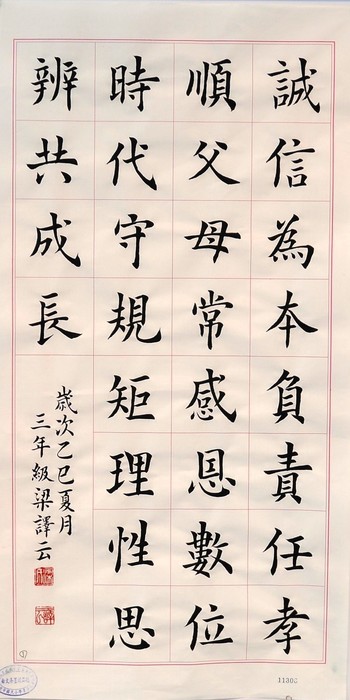 誠信為本負責任孝
順父母常感恩數位
時代守規矩理性思
辨共成長
歲次乙巳夏月
三年級梁譯云
11302